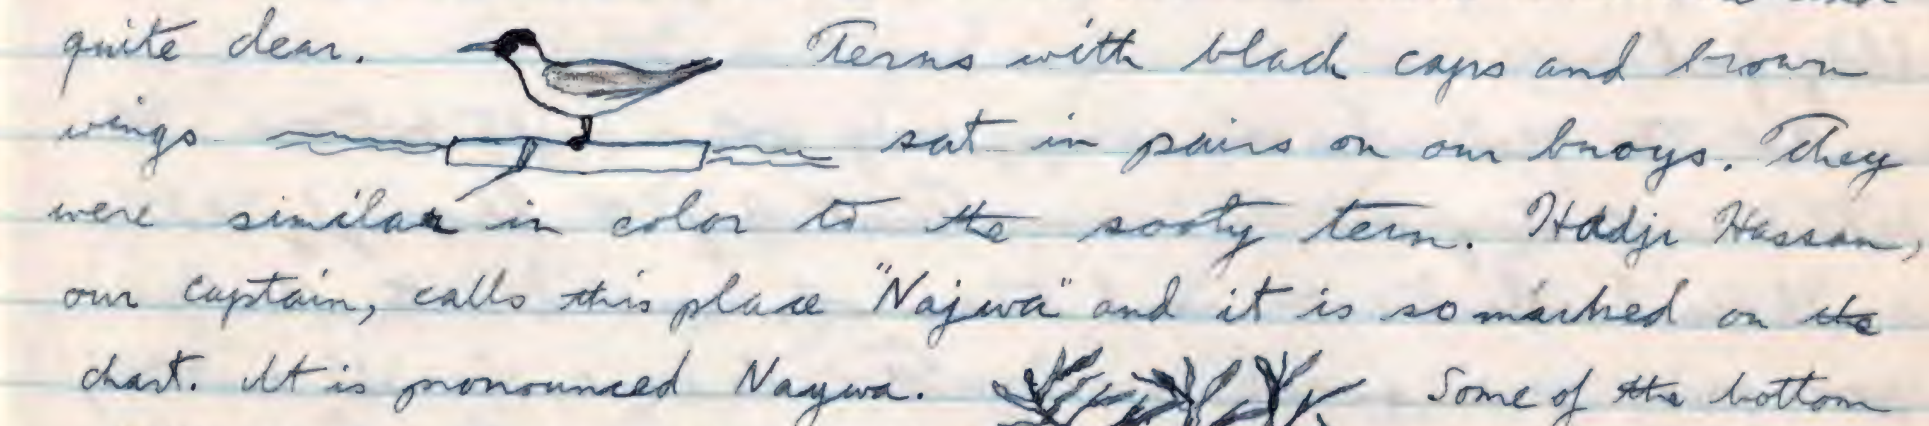 quite clear. Terns with black caps and brown
wings sat in pairs on our buoys. They
were similar in color to the sooty tern. Hadji Hassan,
our captain, calls this place "Najwa" and it is so marked on the
chart. It is pronounced Naywa. Some of the bottom